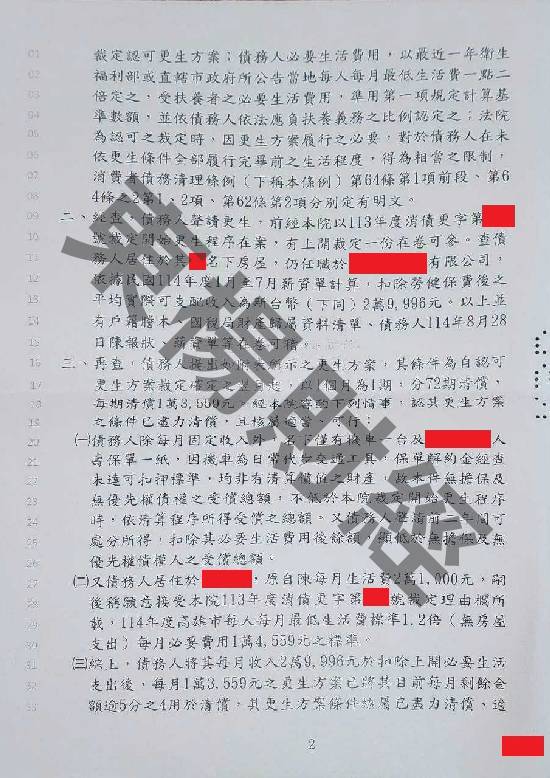 01 裁定認可更生方案;債務人必要生活費用,以最近一年衛生
02 福利部或直轄市政府所公告當地每人每月最低生活費一點二
03 倍定之,受扶養者之必要生活費用,準用第一項規定計算基
04 準數額,並依債務人依法應負扶養義務之比例認定之;法院
05 為認可之裁定時,因更生方案履行之必要,對於債務人在未
06 依更生條件全部履行完畢前之生活程度,得為相當之限制,
07 消費者債務清理條例(下稱本條例)第64條第1項前段、第6
08 4條之2第1、2項、第62條第2項分別定有明文。
09 二、經查,債務人聲請更生,前經本院以113年度消債更字第
10 號裁定開始更生程序在案,有上開裁定一份在卷可參。查債
11 務人居住於其 名下房屋,仍任職於 有限公司,
12 依據民國114年度1月至7月薪資單計算,扣除勞健保費後之
13 平均實際可支配收入為新台幣(下同)2萬9,996元。以上並
14 有戶籍謄本、國稅局財產歸屬資料清單、債務人114年8月28
15 日陳報狀、薪資單等在卷可稽
16 三、再查,債務人提出如附表所示之更生方案,其條件為自認可
17 更生方案裁定確定之翌日起,以1個月為1期,分72期清償,
18 每期清償1萬3,559元,經本院審酌下列情事,認其更生方案
19 之條件已盡力清償,且核屬適當、可行:
20 ㈠債務人除每月固定收入外,名下僅有機車一台及 人
21 壽保單一紙,因機車為日常代步交通工具,保單解約金經查
22 未達可扣押標準,均非有清算價值之財產,故本件無擔保及
23 無優先權債權之受償總額,不低於本院裁定開始更生程序
24 時,依清算程序所得受償之總額。又債務人聲請前二年間可
25 處分所得,扣除其必要生活費用後餘額,顯低於無擔保及無
26 優先權債權人之受償總額。
27 ㈡又債務人居住於 ,原自陳每月生活費2萬1,000元,嗣
28 後稱願意接受本院113年度消債更字第 號裁定理由欄所
29 載,114年度高雄市每人每月最低生活費標準1.2倍(無房屋
30 支出)每月必要費用1萬4,559元之標準。
31 ㈢綜上,債務人將其每月收入2萬9,996元於扣除上開必要生活
32 支出後,每月1萬3,559元之更生方案已將其目前每月剩餘金
33 額逾5分之4用於清償,其更生方案條件核屬已盡力清償、適
2